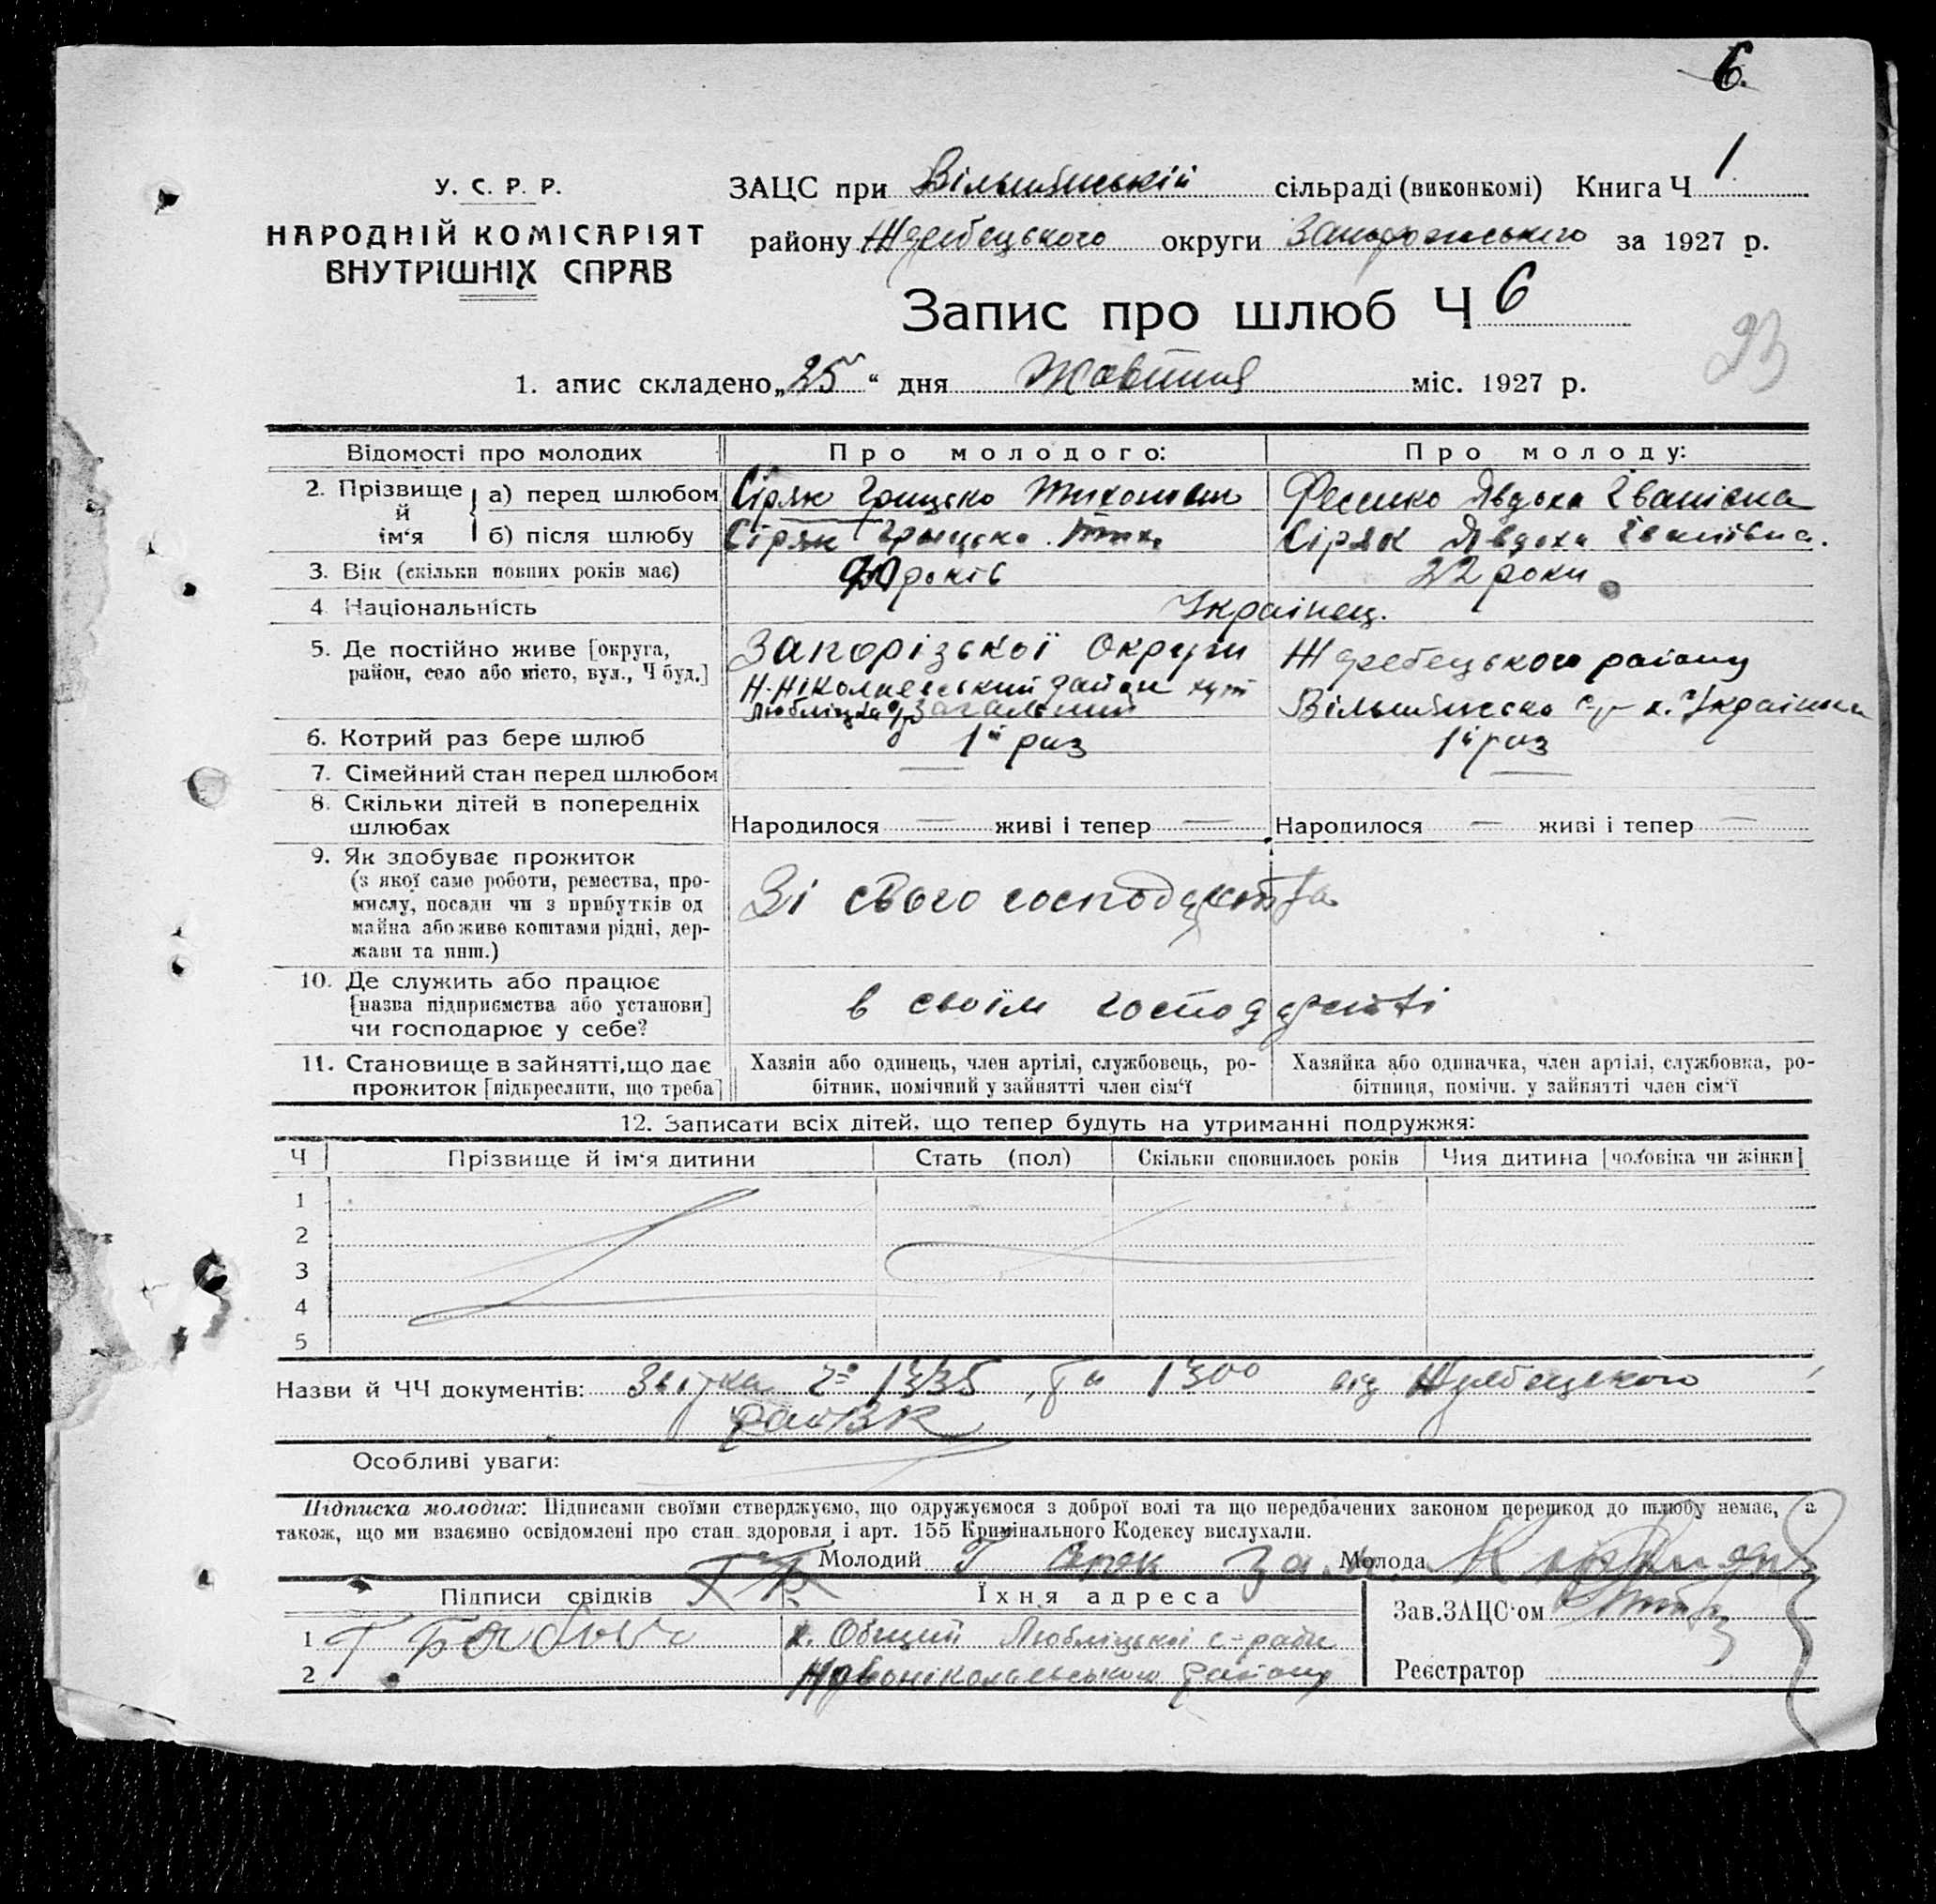 6.
У. С. Р. Р.
НАРОДНІЙ КОМІСАРІЯТ
ВНУТРІШНІХ СПРАВ
ЗАЦС при сільраді (виконкомі) Книга Ч 1
району Жеребецького округи Запорожського за 1927 р.
Запис про шлюб Ч 6
93
1. апис складено „25“ дня Жовтня міс. 1927 р.
Відомості про молодих Про молодого: Про молоду:
2. Прізвище й ім‘я
а) перед шлюбом Сіряк Грицько Фесенко Явдоха Іванівна
б) після шлюбу Сіряк Грицько Сіряк Явдоха Іванівна.
3. Вік (скільки повних років має) 20 років 22 роки
4 Національність Украінец.
5. Де постійно живе [округа, Запорізської Округи Жеребецького району
район, село або місто, вул., Ч буд.] Н-Ніколаєвський район хут
Загальний
6. Котрий раз бере шлюб 1й раз 1й раз
7. Сімейний стан перед шлюбом — —
8. Скільки дітей в попередніх
шлюбах Народилося — живі і тепер — Народилося — живі і тепер —
9. Як здобуває прожиток
(з якої саме роботи, ремества, про-
мислу, посади чи з прибутків од Зі свого господарства
майна або живе коштами рідні, дер-
жави та инш.)
10. Де служить або працює
[назва підприємства або установи] в своїм господарстві
чи господарює у себе?
11. Становище в зайнятті, що дає Хазяїн або одинець, член артілі, службовець, ро- Хазяйка або одиначка, член артілі, службовка, ро-
прожиток [підкреслити, що треба] бітник, помічний у зайнятті член сім‘ї бітниця, помічн. у зайнятті член сім‘ї
12. Записати всіх дітей, що тепер будуть на утриманні подружжя:
Ч Прізвище й ім‘я дитини Стать (пол) Скільки сповнилось років Чия дитина [чоловіка чи жінки]
1
2
3
4
5
Назви й ЧЧ документів: 1335, та 1300 від Жеребецького
райВК
Особливі уваги:
Підписка молодих: Підписами своїми стверджуємо, що одружуємося з доброї волі та що передбачених законом перешкод до шлюбу немає, а
також, що ми взаємно освідомлені про стан здоровля і арт. 155 Кримінального Кодексу вислухали.
Молодий Г Сіряк Молода
Підписи свідків Їхня адреса
Зав.ЗАЦС‘ом
1 х. Общий Любліцької с-ради
2 Новоніколаєвського району
Реєстратор